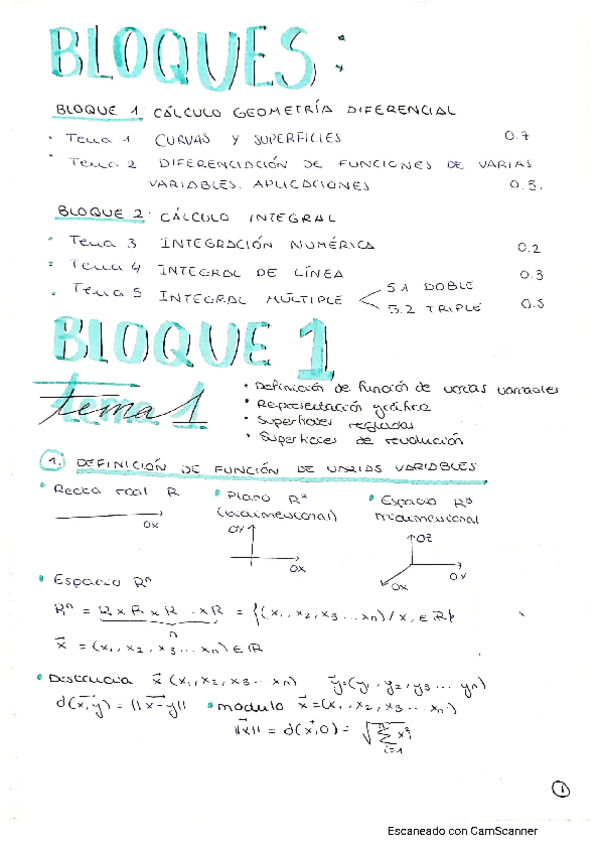 BLOQUES:
BLOQUE 1: CÁLCULO GEOMETRÍA DIFERENCIAL
· Tema 1 CURVAS Y SUPERFICIES 0.7
· Tema 2 DIFERENCIACIÓN DE FUNCIONES DE VARIAS
VARIABLES. APLICACIONES 0.3.
BLOQUE 2: CÁLCULO INTEGRAL
· Tema 3 INTEGRACIÓN NUMÉRICA 0.2
· Tema 4 INTEGRAL DE LÍNEA 0.3
· Tema 5 INTEGRAL MÚLTIPLE < 5.1 DOBLE
5.2 TRIPLE 0.5
BLOQUE 1
tema 1
· Definición de función de varias variables
· Representación gráfica
· Superficies regladas
· Superficies de revolución
1. DEFINICIÓN DE FUNCIÓN DE VARIAS VARIABLES
· Recta real R
OX
· Plano R²
(bidimensional)
OY
OX
· Espacio R³
tridimensional
OZ
OY
OX
· Espacio Rⁿ
Rⁿ = R x R x R ·· x R = {(x₁, x₂, x₃ ... xₙ) / xᵢ ∈ R}
n
x⃗ = (x₁, x₂, x₃ ... xₙ) ∈ R
· Distancia x⃗ (x₁, x₂, x₃ ·· xₙ) y⃗ = (y₁, y₂, y₃ ... yₙ)
d(x⃗, y⃗) = ||x⃗-y⃗|| · modulo x⃗ = (x₁, x₂, x₃ ... xₙ)
||x⃗|| = d(x⃗, 0) = √(∑ⁿᵢ₌₁ xᵢ²)
1
Escaneado con CamScanner